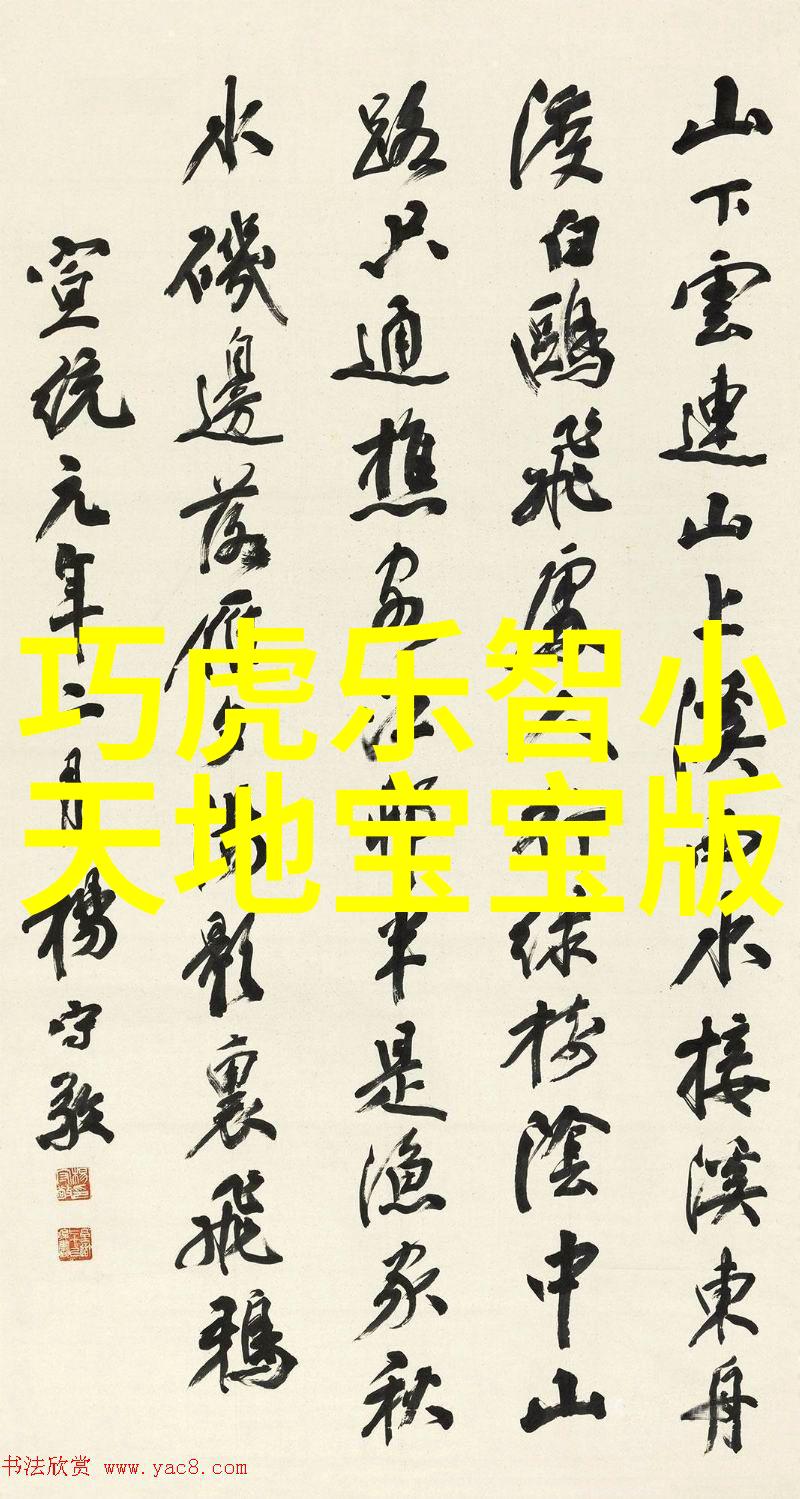 山下雲連山上溪西水接溪東舟
渡白鷗飛處人行綠樹陰中山
路只通樵客江村半是漁家秋
水磯邊落雁夕陽影裏飛鴉
宣統元年二月楊守敬
巧虎乐智小
天地宝宝版
书法欣赏 www.yac8.com